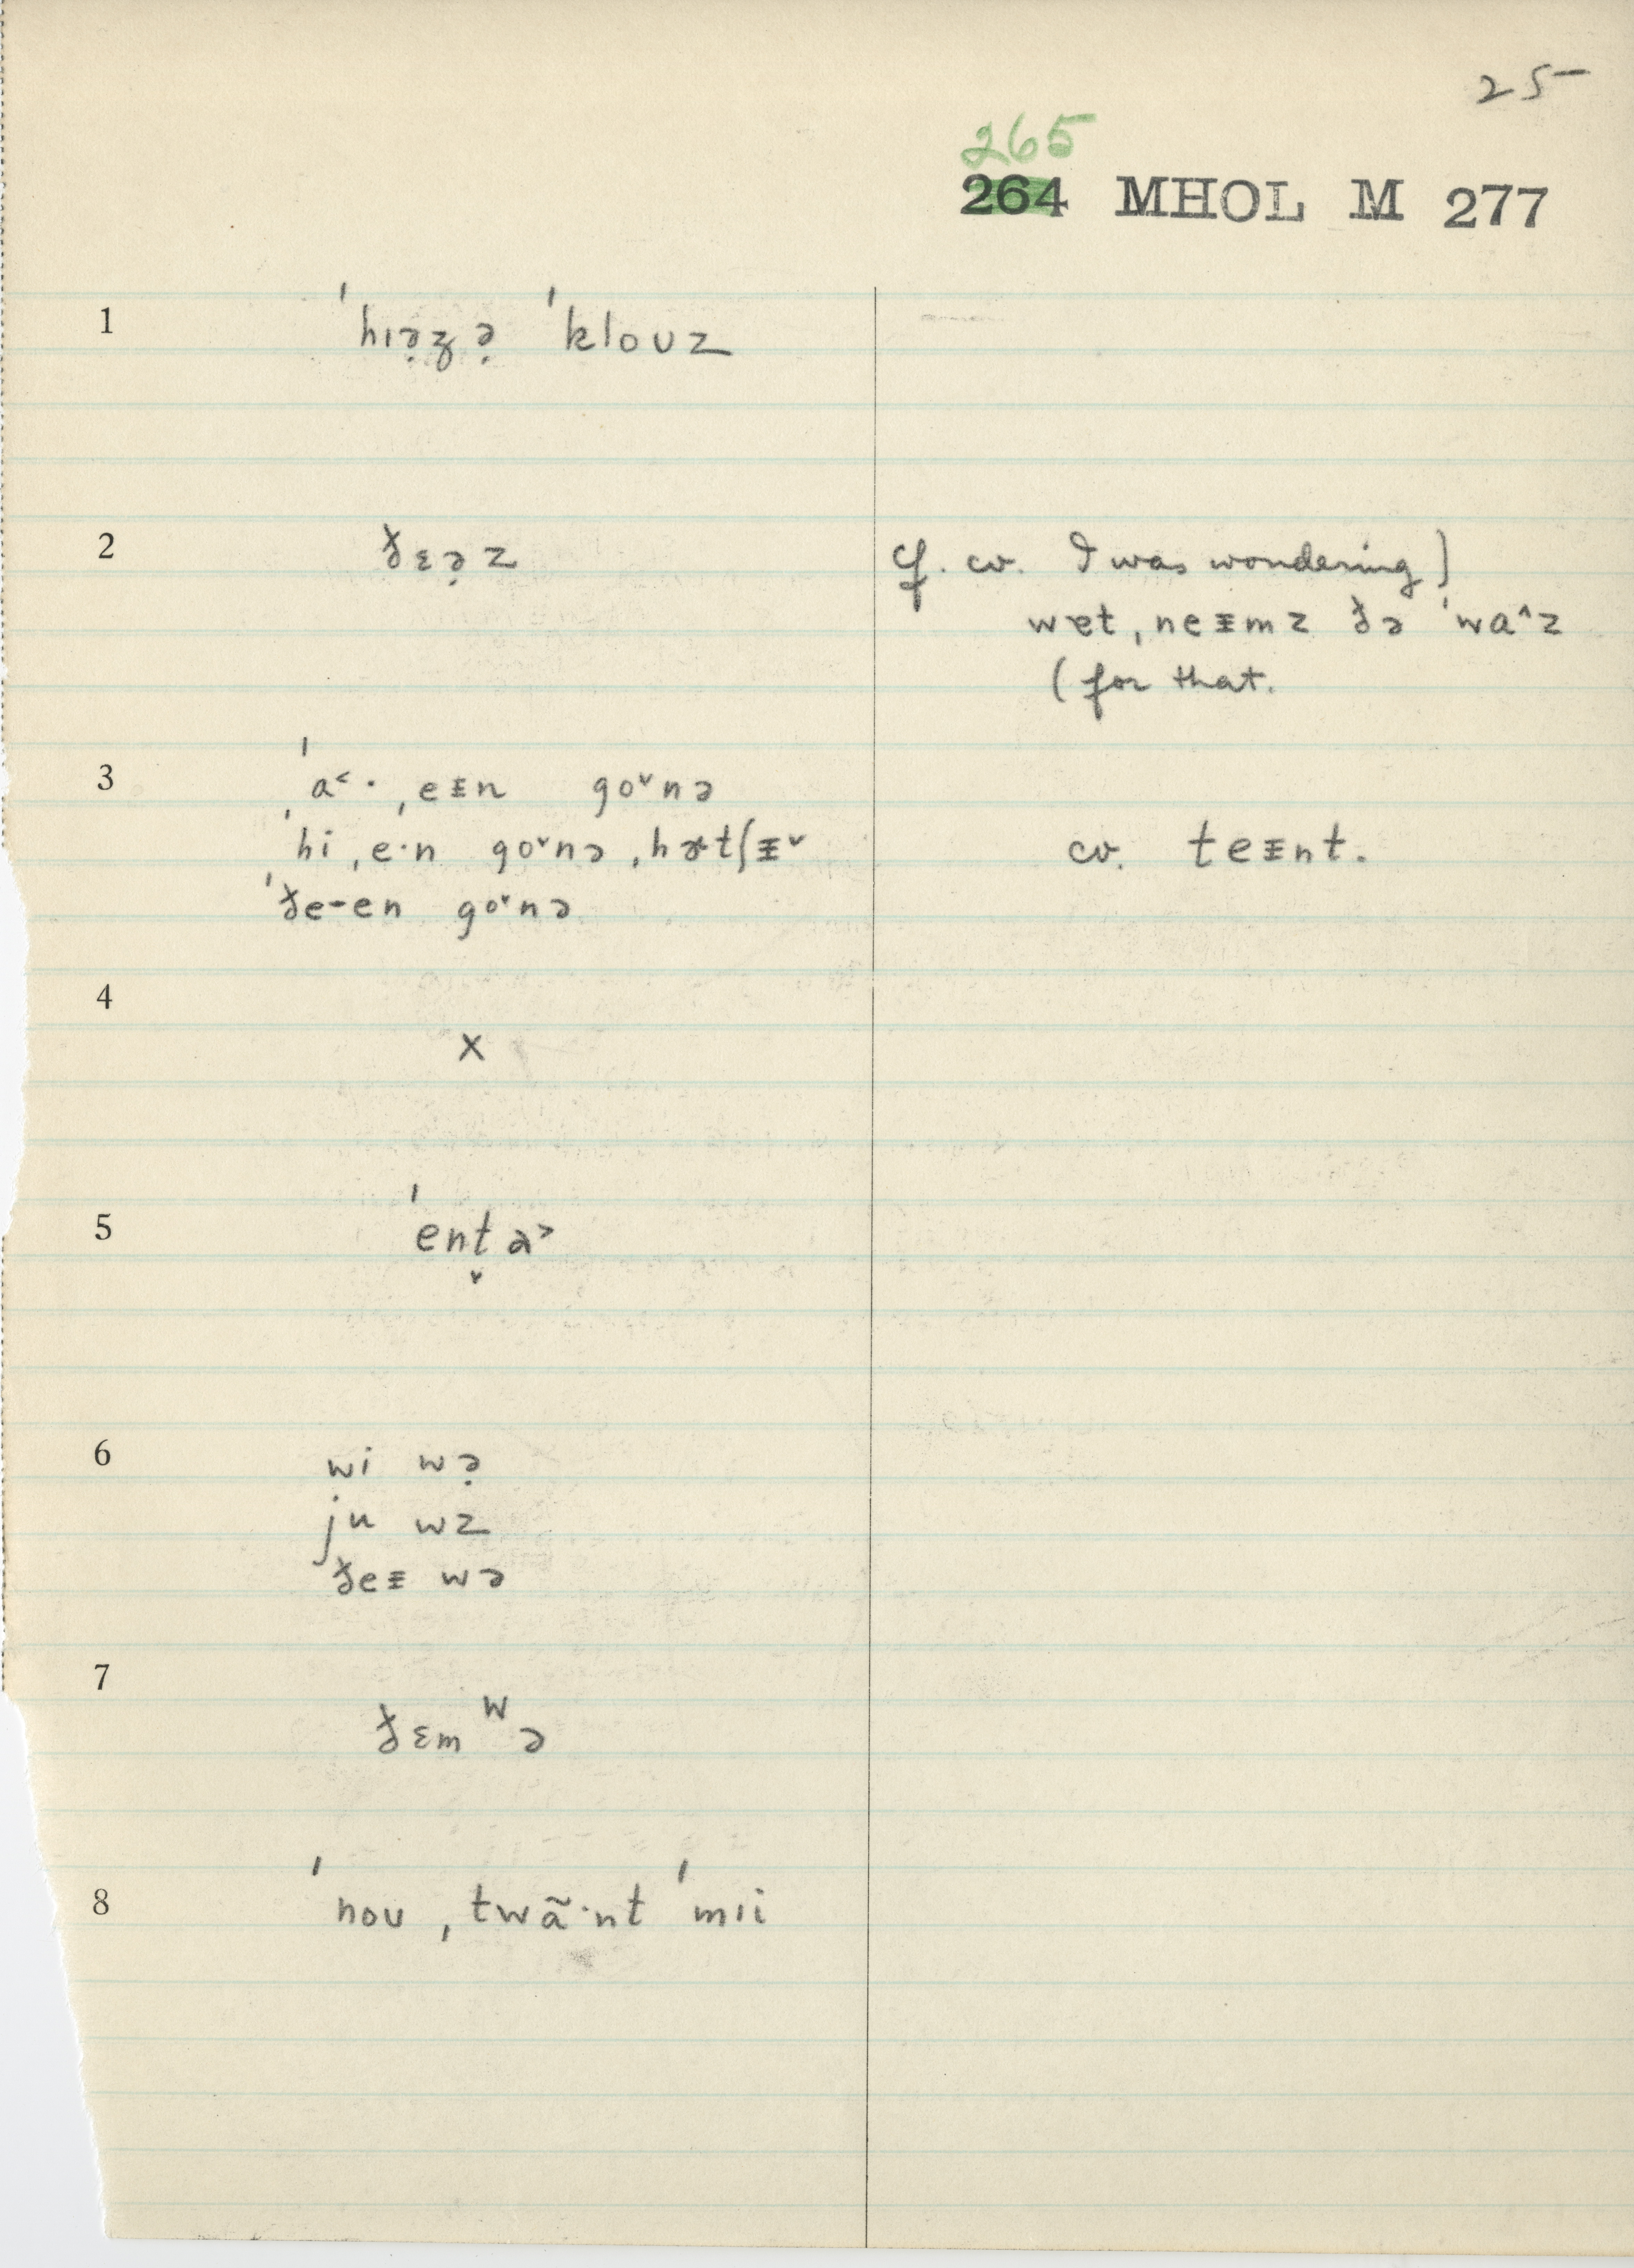 25
265
264 MHOL M 277
1 ˈhɪə̣z̥ə̣ ˈkloʊz
2 ðɛə̣z cf. cv. I was wondering)
wɐt ˌneᵻmz ðə ˈwɑ^z
(for that.
3 ˈa˂· ˌeᵻn go˅nə
ˈhi ˌe·n go˅nə ˌhætʃᵻ˅ cv. teᵻnt.
ˈðe-en go˅nə
4 x
5 ˈent̬ə˃
6 wi wə̣
ju wz
ðeᵻ wə
7 ðɛmʷə
8 ˈnoʊ ˌtwã·nt ˈmɪi